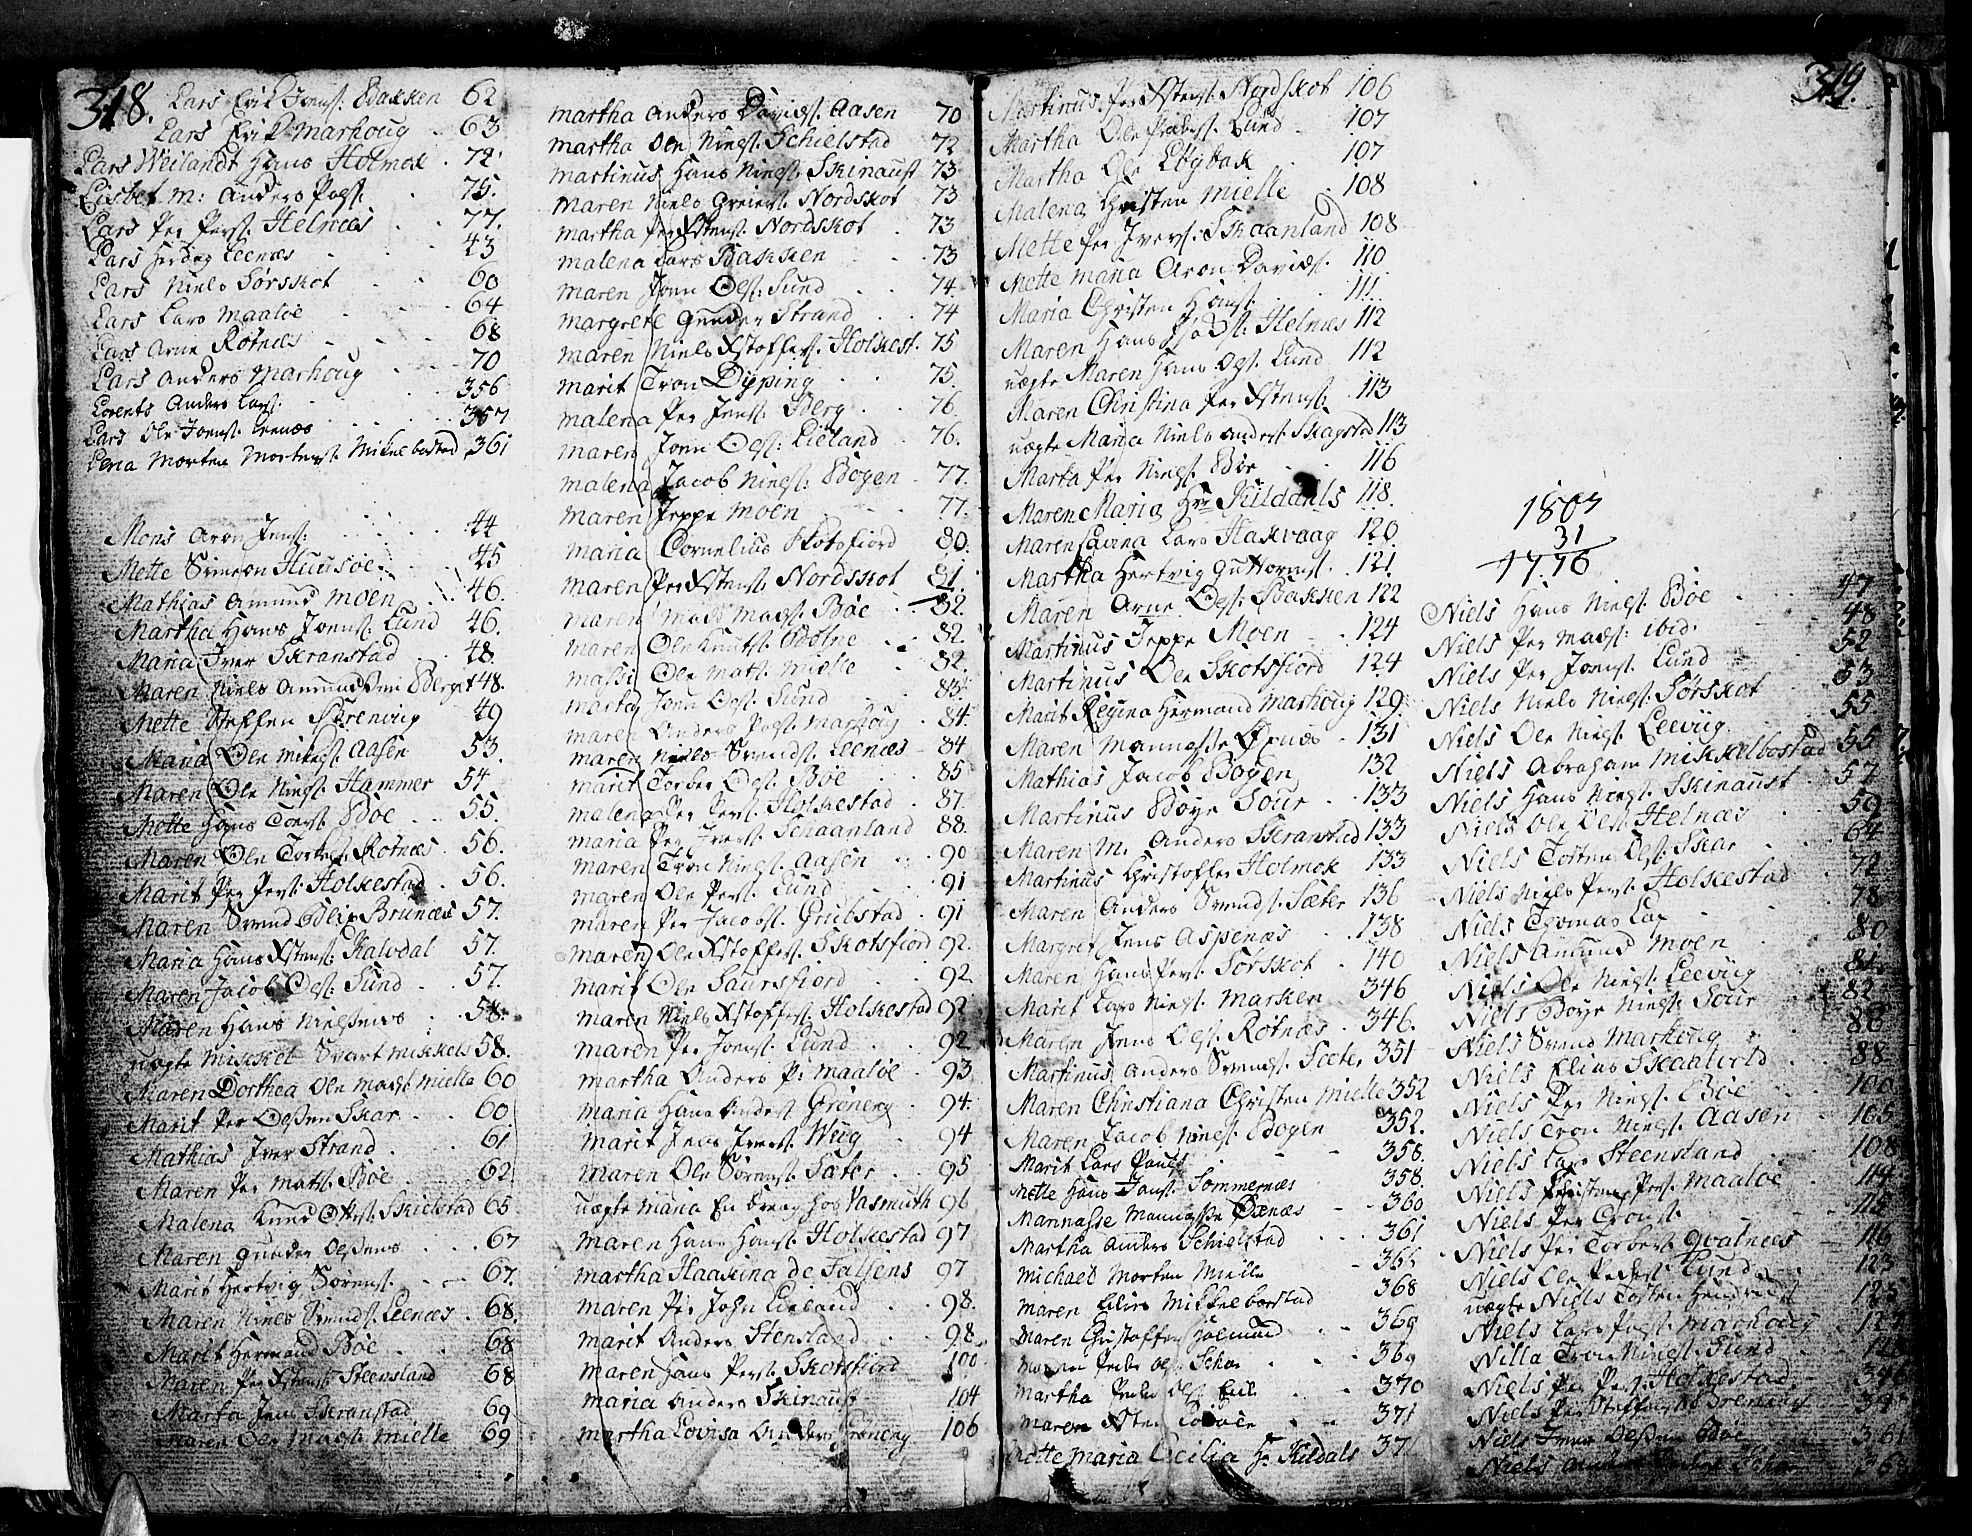 318.
Lars Erik Jons: Backken 62
Lars Erik Marhoug 63
Lars Weilandt Hans Holmok 72
Lisbet M: Anders Pags: 75.
Lars Per Pers: Helnæs 77.
Lars Leenæs 43
Lars Niels Sørskot 60
Lars Lars Maaløe 64
Lars Arne Rotnæs 68
Lars Anders Marhoug 70
Lorents Anders Lars: 356
Lars Ole Joens: Leenæs 357
Lena Morten Mortens: Mikkelbostad 361
Mons Aron Jens: 44
Mette Simeon Huusøe 45
Mathias Amund Moen 46.
Martha Hans Joens: Lund 46.
Maria Iver Skranstad 48.
Maren Niels Amundsen Berget 48.
Mette Steffen Børenvig 49
Maria Ole Mikels: Aasen 53.
Maren Ole Niels: Hammer 54
Mette Hans Toers: Bøe 55.
Maren Ole Torbers: Rotnæs 56.
Marit Per Pers: Holkestad 56.
Maren Svend Blix Brunæs 57.
Maria Hans Xstens: Kalvdal 57.
Maren Jacob Ols: Sund 57.
Maren Hans Nielsens 58.
uægte Mikkel Svart Mikkels 58.
Maren Dorthea Ole Mads: Mielle 60
Marit Per Olssen Skar 60.
Mathias Iver Strand 61.
Maren Per Mats: Bøe 62.
Malena Knud Ols: Skielstad 65
Maren Gunder Olssens 67
Marit Hertvig Sørens: 67.
Maren Niels Svends: Leenæs 68.
Marit Hermand Bøe 68
Maren Per Xstens: Steensland 68
Marta Jens Skranstad 69
Maren Ole Mads: Mielle 69
Martha Anders Davids: Aasen 70
Martha Ole Niels: Schielstad 72
Martinus Hans Niels: Skinaust 73
Maren Niels Greiers: Nordskot 73
Martha Per Xstens: Nordskot 73
Malena Lars Backken 73
Maren Jonn Ols: Sund 74
Margrete Gunder Strand 74
Maren Niels Xstoffers: Holkest. 75
Marit Tron Dypping 75.
Malena Per Jens: Berg 76
Maren Jonn Ols: Lieland 76.
Malena Jacob Niels: Bogen 77.
Maren Jeppe Moen 77.
Maria Cornelius Skotsfiord 80.
Maren Per Xstens: Nordskot 81.
Maren Mads Mads: Bøe 82.
Maren Ole Knuts: Botne 82.
Massi Ole Mats: Mielle 82.
Marta Jonn Ols: Sund 83.
Maren Anders Pags: Marhoug 84.
Maren Niels Svends: Leenæs 84
Marit Torber Ols: Bøe 85
Malena Per Pers: Holkestad 87.
Maria Per Ivers: Schaanland 88.
Maren Tron Niels: Aasen 90
Maren Ole Pers: Lund 91
Maren Per Jacobs: Grübstad 91
Maren Ole Xstoffers: Skotsfiord 92.
Marit Ole Saursfiord 92.
Maren Niels Xstoffers: Holkestad 92
Maren Per Joens: Lund 92
Martha Anders P: Maaløe 93
Maria Hans Anders: Grøneng 94.
Marit Jens Ivers: Wiig 94
Maren Ole Sørens: Sæter 95
uægte Maria En dreng hos Vasmuth 96
Maren Hans Hans: Holkestad 97
Martha Haakina de Falsens 97
Maren Per John Lieland 98.
Marit Anders Stensland 98.
Maren Hans Pers: Skotsfiord 100
Maria Anders Skinaust 104
Martha Lovisa Anders Grøneng 106
319.
Martinus Per Xstens: Nordskot 106
Martha Ole Peders: Lund 107
Martha Ole Ebybak 107
Malena Christen Mielle 108
Mette Per Ivers: Skaanland 108
Mette Maria Aron Davids: 110
Maria Christen Hans: 111.
Maren Hans Helnæs 112
uægte Maren Hans Ols: Lund 112
Maren Christina Per Xstens: 113
uægte Maria Niels Anders: Skagstad 113
Marta Per Niels: Bøe 116
Maren Maria Hr. Kildahls 118.
Maren Lavina Lars Haskvaag 120
Martha Hertvig Guttorms: 121
Maren Arne Ols: Backken 122
Martinus Jeppe Moen 124
Martinus Ole Skotsfiord 124
Marit Regina Hermand Marhoug 129
Maren Mannasse Øxnæs 131
Mathias Jacob Bogen 132
Martinus Boye Sour 133
Maren M. Anders Skranstad 133
Martinus Christoffer Holmok 133
Maren Anders Svends: Sæter 136
Margret Jens Aspenæs 138
Maren Hans Pers: Sørskot 140
Marit Lars Niels: Marken 346
Maren Jens Ols: Rotnæs 346.
Martinus Anders Svends: Sæter 351
Maren Christiana Christen Mielle 352
Maren Jacob Niels: Bogen 352.
Marit Lars Pauls 358.
Mette Hans Jons: Sommernæs 358.
Mannasse Mannasse Øxnæs 360
Martha Anders Schielstad 361
Michael Morten Mielle 366
Maren Elias Mikkelborstad 368
Maren Christoffer Holmund 369
Maren Peder Ols: Skar 369
Martha Peder Ols: 370
Maren Sten 371
Mette Maria Cecilia H: Kildals 37
1807
31
1776
Niels Hans Niels: Bøe 47
Niels Per Mads: ibid. 48
Niels Per Joens: Lund 52
Niels Niels Niels: Sørskot 53
Niels Ole Niels: Leevig 55
Niels Abraham Mikkelbostad 55
Niels Hans Niels: Skinaust 57
Niels Ole Ols: Helnæs 59
Niels Torsten Ols: Skar 64
Niels Niels Pers: Holkestad 72
Niels Thomas Lap 78
Niels Amund Moen 80
Niels Ole Niels: Leevig 81
Niels Boye Niels: Sour 82
Niels Svend Marhoug 86
Niels Elias Skaalvold 88
Niels Per Niels: Bøe 100
Niels Tron Niels: Aasen 105
Niels Lars Steensland 108
Niels Christen Pers: Maaløe 114
Niels Per Trons: 115
Niels Per Torbers: Qvalnæs 116
Niels Ole Peders: Lund 123
uægte Niels Torsten Hendrichs: 125
Niels Lars Pags: Marhoug
Nilla Tron Niels: Sund
Niels Per Pers: Holkestad
Niels Per Steffens:
Niels Iver Olssen Bøe 361
Niels Anders